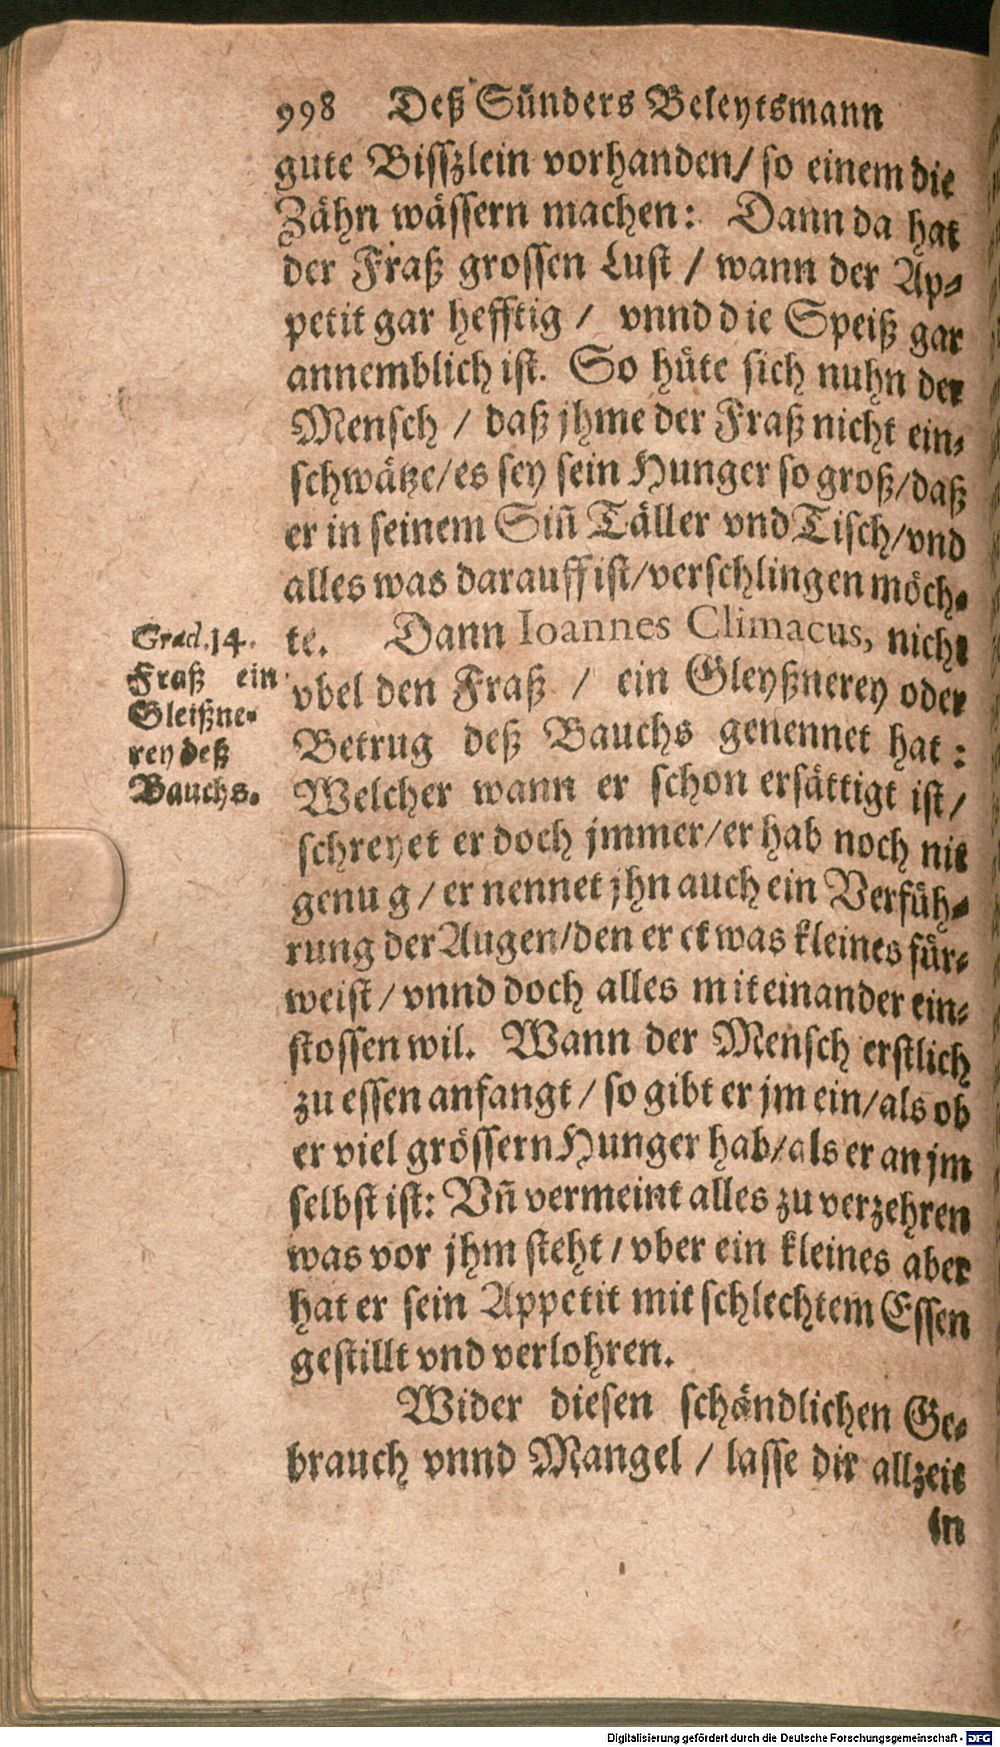 998 Deß Sünders Beleytsmann
gute Bisszlein vorhanden/ so einem die
Zähn wässern machen: Dann da hat
der Fraß grossen Lust / wann der Ap-
petit gar hefftig / vnnd die Speiß gar
annemblich ist. So hüte sich nuhn der
Mensch / daß jhme der Fraß nicht ein-
schwätze/es sey sein Hunger so groß/daß
er in seinem Siñ Täller vnd Tisch/vnd
alles was darauff ist/verschlingen möch-
te. Dann Ioannes Climacus, nicht
vbel den Fraß / ein Gleyßnerey oder
Betrug deß Bauchs genennet hat:
Welcher wann er schon ersättigt ist/
schreyet er doch jmmer/er hab noch nit
genug/ er nennet jhn auch ein Verfüh-
rung der Augen/den er etwas kleines für-
weist/ vnnd doch alles miteinander ein-
stossen wil. Wann der Mensch erstlich
zu essen anfangt/ so gibt er jm ein/als ob
er viel grössern Hunger hab/als er an jm
selbst ist: Vñ vermeint alles zu verzehren
was vor jhm steht/ vber ein kleines aber
hat er sein Appetit mit schlechtem Essen
gestillt vnd verlohren.
Wider diesen schändlichen Ge-
brauch vnnd Mangel / lasse dir allzeit
in
Grad.14.
Fraß ein
Gleißne-
rey deß
Bauchs.
Digitalisierung gefördert durch die Deutsche Forschungsgemeinschaft - DFG